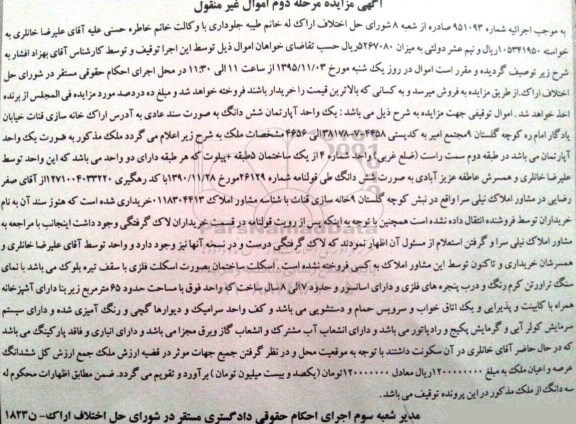 آگهی مزایده مرحله دوم اموال غیر منقول
به موجب اجرائیه شماره ۹۵۱۰۹۳ صادره از شعبه ۸ شورای حل اختلاف اراک له خانم طیبه جلوداری با وکالت خانم خاطره حسنی علیه آقای علیرضا خانلری به
خواسته ۱۰۵۳۴۱۹۵۰ریال و نیم عشر دولتی به میزان ۵۲۶۷۰۸۰ریال حسب تقاضای خواهان اموال ذیل توسط این اجرا توقیف و توسط کارشناس آقای بهزاد افشار به
شرح زیر توصیف گردیده و مقرر است اموال در روز یک شنبه مورخ ۱۳۹۵/۱۱/۰۳ از ساعت ۱۱ الی ۱۱:۳۰ در محل اجرای احکام حقوقی مستقر در شورای حل
اختلاف اراک.از طریق مزایده به فروش میرسد و به کسانی که بالاترین قیمت را خریدار باشند فروخته خواهد شد و مبلغ ده درصد مورد مزایده فی المجلس از برنده
اخذ خواهد شد . اموال توقیفی جهت مزایده به شرح ذیل می باشد : یک واحد آپارتمان شش دانگ به صورت سند عادی به آدرس اراک خانه سازی قنات خیابان
یادگار امام ره کوچه گلستان ۹مجتمع امیر به کدپستی ۴۴۵۸-۷-۳۸۱۷۸الی ۴۶۵۶مشخصات ملک به شرح زیر اعلام می گردد ملک مذکور به صورت یک واحد
آپارتمان می باشد در طبقه دوم سمت راست (ضلع غربی) واحد شماره ۴ از یک ساختمان ۵طبقه +پیلوت که هر طبقه دارای دو واحد می باشد که این واحد توسط
علیرضا خانلری و همسرش عاطفه عزیز آبادی به صورت شش دانگ طی قولنامه شماره ۲۶۱۲۹مورخ ۱۳۹۰/۱۱/۲۸با کد رهگیری ۱۲۷۱۰۰۴۰۳۳۲۲۰از آقای صفر
رضایی در مشاور املاک نیلی سرا واقع در نبش کوچه گلستان ۹خانه سازی قنات با شناسه مشاور املاک ۰۱۱۸۳۰۴۴۱۳خریداری شده است که هنوز سند آن به نام
خریداران توسط فروشنده انتقال داده نشده است همچنین با توجه به اینکه پس از رویت قولنامه در قسمت خریداران لاک گرفتگی وجود داشت اینجانب با مراجعه به
مشاور املاک نیلی سرا و گرفتن استعلام از مسئول آن اظهار نمودند که لاک گرفتگی درست و در نسخه آنها نیز وجود دارد و واحد توسط آقای علیرضا خانلری و
همسرشان خریداری و تاکنون توسط این مشاور املاک به کسی فروخته نشده است . اسکلت ساختمان بصورت اسکلت فلزی با سقف تیره بلوک می باشد با نمای
سنگ تراورتن کرم رنگ و درب پنجره های فلزی و دارای آسانسور و حدود ۷الی ۸ سال ساخت که واحد فوق با مساحت حدود ۶۵ مترمربع زیر بنا دارای آشپزخانه
همراه با کابینت و پذیرایی و یک اتاق خواب و سرویس حمام و دستشویی می باشد و کف واحد سرامیک و دیوارها گچی و رنگ آمیزی شده و دارای سیستم
سرمایش کولر آبی و گرمایش پکیج و رادیاتور می باشد و دارای انشعاب آب مشترک و انشعاب گاز وبرق مجزا می باشد و دارای انباری و فاقد پارکینگ می باشد
که در حال حاضر آقای خانلری در آن سکونت داشتند با توجه به موقعیت محل و در نظر گرفتن جمیع جهات موثر در قضیه ارزش ملک جمع ارزش کل ششدانگ
عرصه و اعیان ملک به مبلغ ۱۲۰۰۰۰۰۰۰۰ریال معادل ۱۲۰۰۰۰۰۰۰تومان (یکصد و بیست میلیون تومان ) برآورد و تقویم می گردد. ضمن مطابق اظهارات محکوم له
سه دانگ از ملک مذکور در این پرونده توقیف می باشد .
مدیر شعبه سوم اجرای احکام حقوقی دادگستری مستقر در شورای حل اختلاف اراک- ن۱۸۲۳